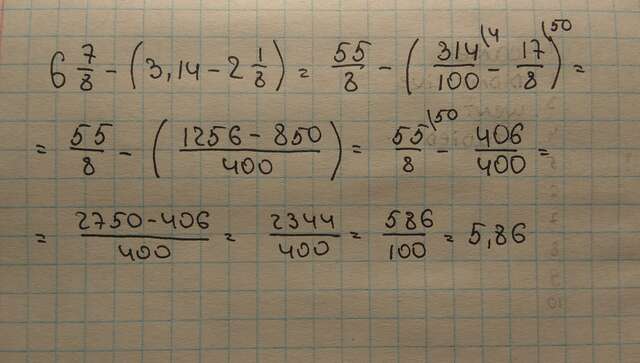 6 7/8 - (3,14 - 2 1/8) = 55/8 - (314/100 (4 - 17/8) (50 =
= 55/8 - (1256 - 850/400) = 55/8 (50 - 406/400 =
= 2750 - 406/400 = 2344/400 = 586/100 = 5,86